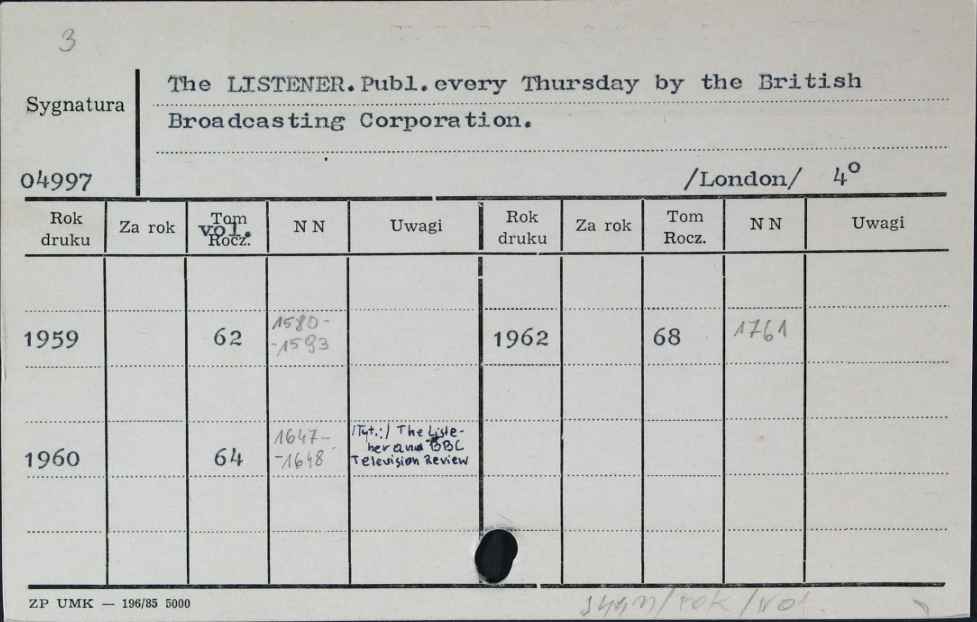 3
The LISTENER.Publ.every Thursday by the British
Sygnatura
Broadcasting Corporation.
04997 /London/ 4°
Rok druku Za rok Tom Rocz. vol. NN Uwagi Rok druku Za rok Tom Rocz. NN Uwagi
1959 62 1580- -1593 1962 68 1761
1960 64 1647- -1648 /Tyt.:/ The Liste- ner and BBC Television Review
ZP UMK — 196/85 5000
sygn/rok/vol.